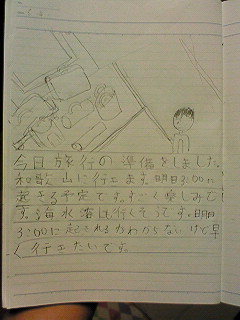 今日旅行の準備をしました。
和歌山に行エます。明日3:00に
起きる予定です。すごく楽しみで
す。海水浴に行くそうです。明日
3:00に起きれるかわからないけど早
く行エたいです。